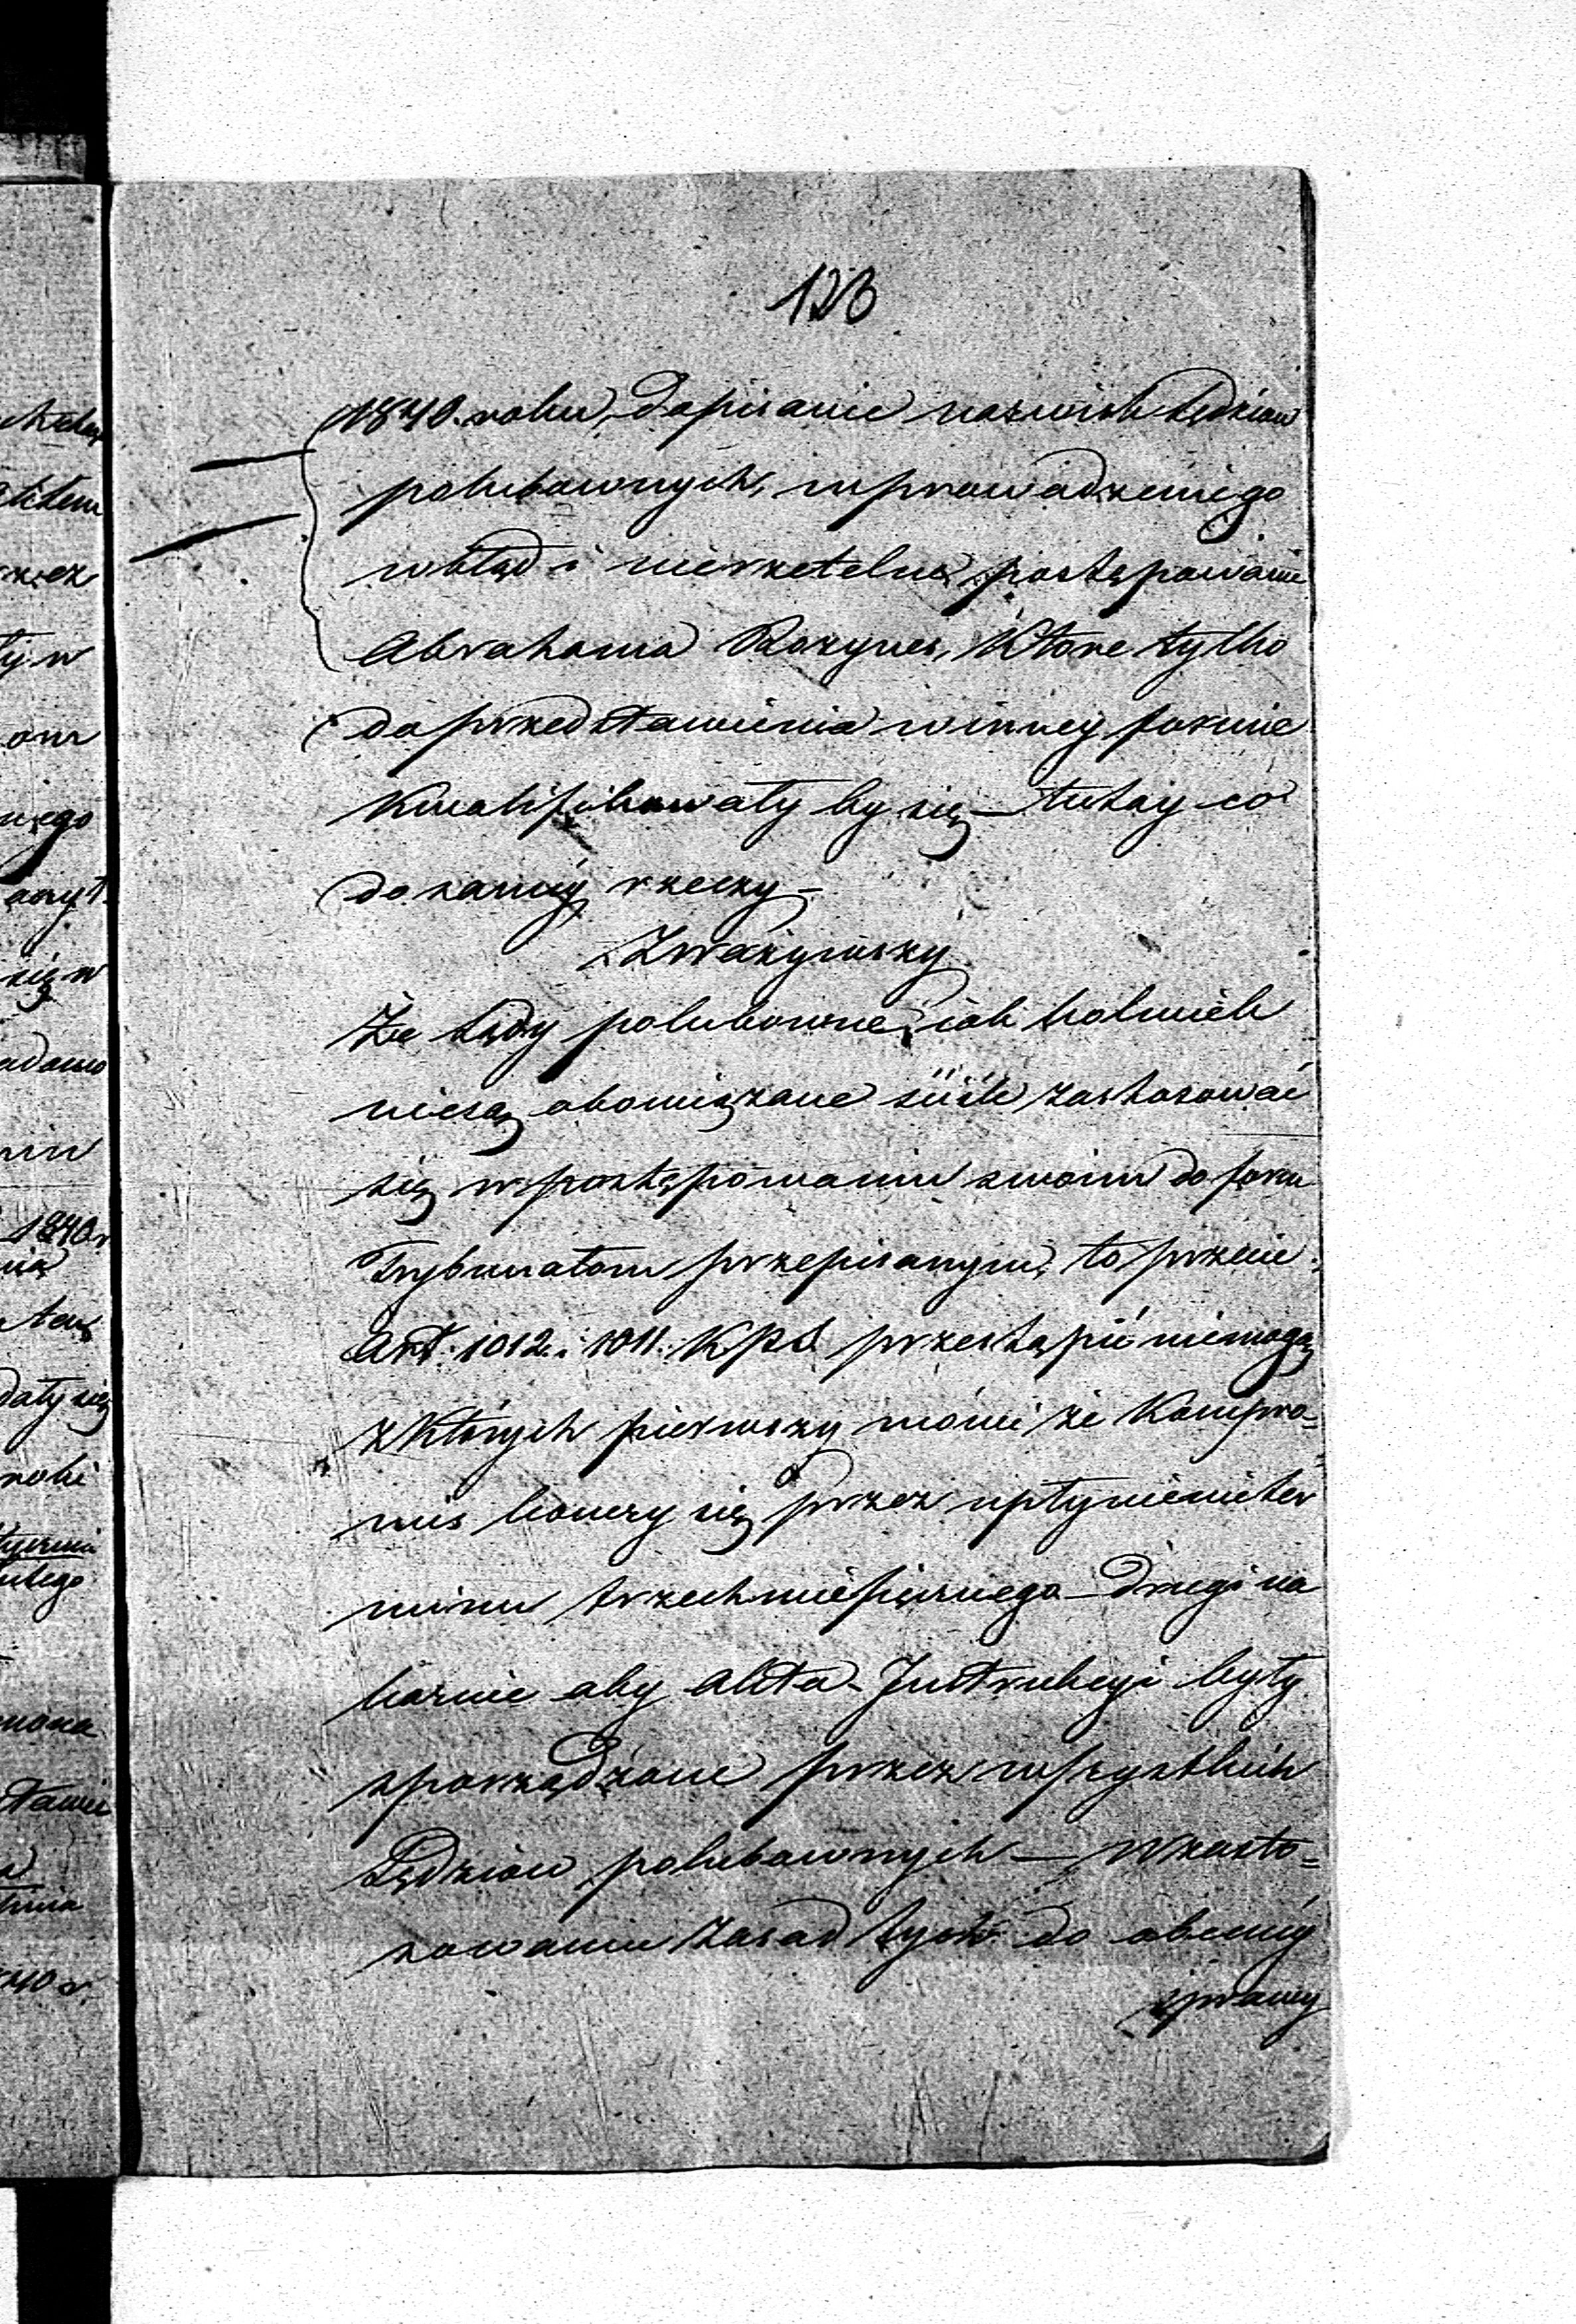 123
1840. roku, dopisanie nazwisk Sędziów
polubownych, wprowadzenie go
wbłąd i nierzetelne postępowanie
Abrahama Rozynes, które tylko
do przedstawienia w inney formie
kwalifikowały by się — tutay co
do samey rzeczy —
Zważywszy
Że Sądy polubowne, iak kolwiek
niesą obowiązane sciśle zastosować
się w postępowaniu swoim do form
Trybunałom przepisanym, to przecie
Art: 1012. i 1011. KPS przestąpić niemogą
z których pierwszy mówi że Kompro=
mis konczy się przez upłynienie ter
minu trzechmiesięcznego — Drugi na
kazuie aby Akta Instrukcyi były
sporządzone przez wszystkich
Sędziów polubownych — w zasto=
sowaniu zasad tych do obecney
sprawy